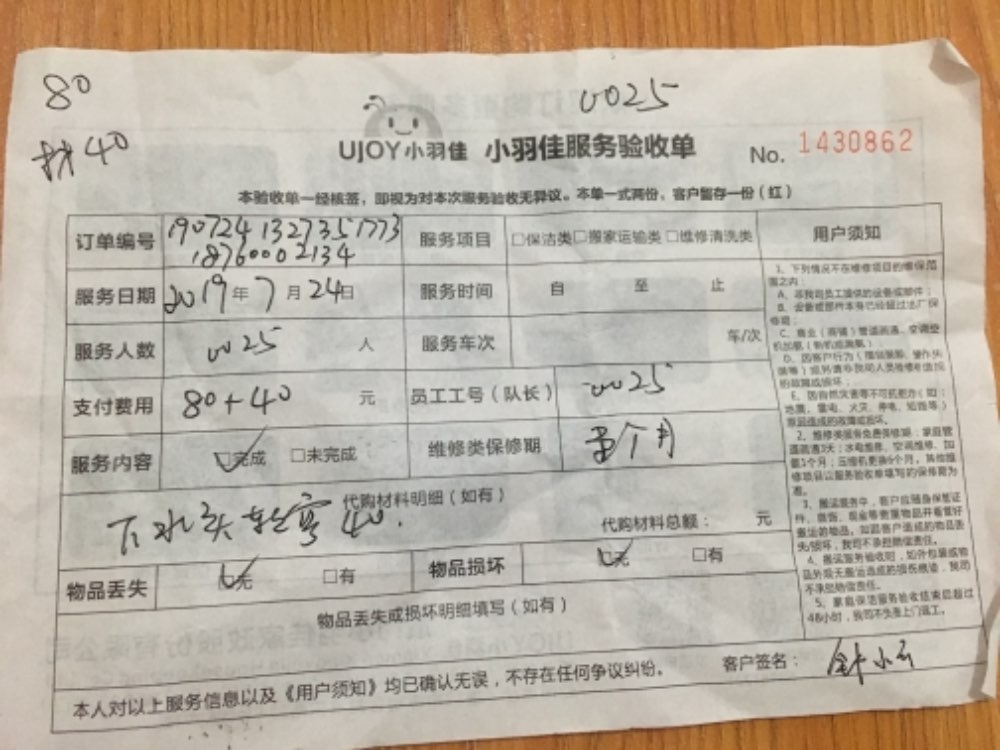 80
0025
材40
UJOY小羽佳 小羽佳服务验收单 No. 1430862
本验收单一经核签，即视为对本次服务验收无异议。本单一式两份，客户暂存一份（红）
订单编号 190724132735 1773
18760002134
服务项目 □保洁类□搬家运输类□维修清洗类
用户须知
服务日期 2019年7月24日 服务时间 自 至 止
服务人数 0025 人 服务车次 车/次
支付费用 80+40 元 员工工号（队长） 0025
服务内容 ☑完成 □未完成 维修类保修期 个月
代购材料明细（如有）
下水头 40.
代购材料总额： 元
物品丢失 ☑无 □有 物品损坏 ☑无 □有
物品丢失或损坏明细填写（如有）
1、下列情况不在维修项目的维保范
围之内：
A、非我司员工提供的设备或部件；
B、设备或部件本身已经超过出厂保
修期；
C、商业（商铺）管道疏通、空调
地震、雷电、火灾、停电、短路等）
造成的故障或损坏。
2、维修类服务免费保修期：家庭管
道疏通3天；水电维修、空调维修、加
氨1个月；压缩机更换6个月，其他维
修项目以服务验收单填写的保修期为
准。
3、搬运服务中，客户应随身保管证
件、首饰、现金等贵重物品并看管好
搬运的物品，如因客户造成的物品丢
失/损坏，我司不承担赔偿责任。
4、搬运服务验收时，如外包装或物
品外观无搬运造成的损伤痕迹，我司
不承担赔偿责任。
5、家庭保洁服务验收结束后超过
48小时，我司不负责上门返工。
本人对以上服务信息以及《用户须知》均已确认无误，不存在任何争议纠纷。 客户签名：